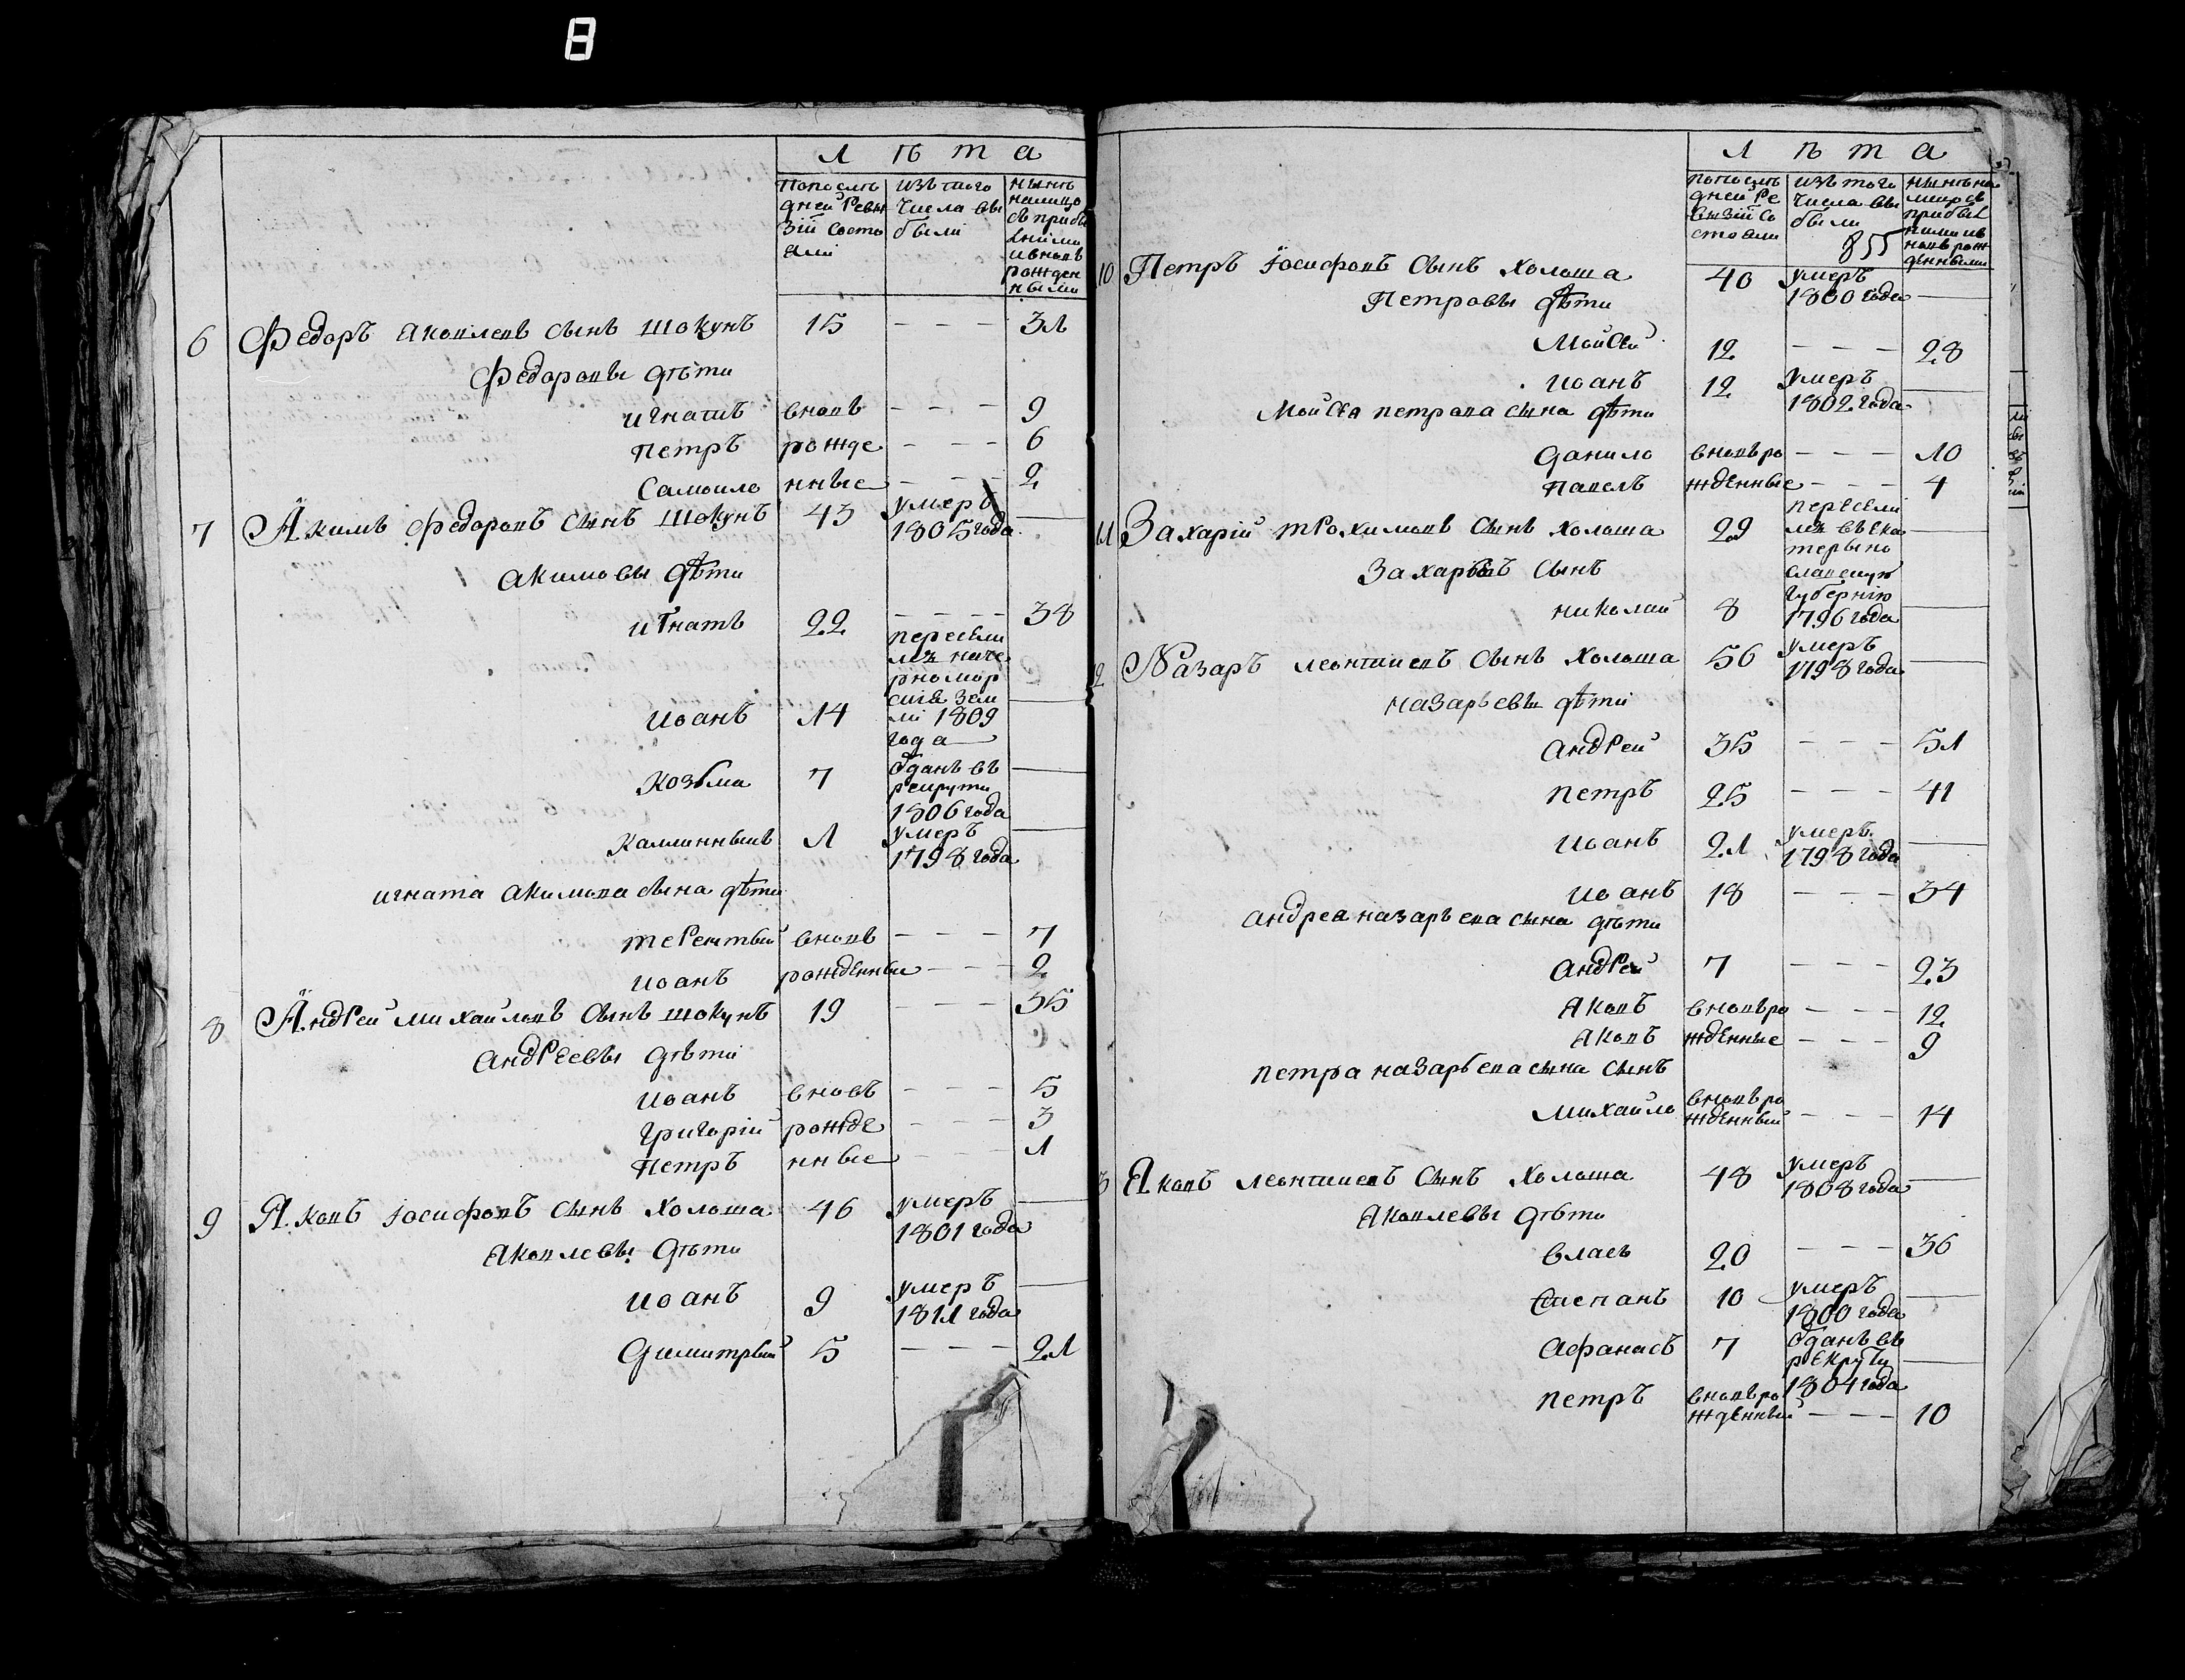 8
Л ѣ т а
Попослѣ дней Ревы зій состо яли
изъ того числа вы были
нынѣ налицо съ прибы лыми и вновь рожден ными
6 Федоръ яковлевъ сынъ шокунъ 15 — — — 31
Федоровы дѣти
игнатъ вновь — — — 9
Петръ рожде — — — 6
Самоило нные — — — 2
7 Акимъ федоровъ сынъ шокунъ 43 умеръ 1805 года —
акимовы дѣти
игнатъ 22 — — — 38
иоанъ 14 пересели лъ наче рномор скія зем лі 1809 года —
Козьма 7 Одань въ рекруты 1806 года —
Каллинныкъ 1 умеръ 1798 года —
игната акимова сына дѣти
терентый вновь — — — 7
иоанъ рожденные — — — 2
8 Андрей михайловъ сынъ шокунъ 19 — — — 35
андреевы дѣти
иоанъ вновъ — — — 5
григорій рожде — — — 3
Петръ нные — — — 1
9 Яковъ іосифовъ сынъ Холоша 46 умеръ 1801 года —
яковлевы дѣти
иоанъ 9 умеръ 1811 года —
димитрый 5 — — — 21
Л ѣ т а
попослѣ дней Ре визій со стояли
изъ того числа вы были
нынѣ на лицо съ прибы лыми и в новь рож денными
855
10 Петръ іосифовъ сынъ холоша 40 умеръ 1800 года —
Петровы дѣти
Мойсей 12 — — — 28
иоанъ 12 умеръ 1802 года —
Мойсея петрова сына дѣти
данило вновь ро — — — 10
павелъ жденные — — — 4
11 Захарій трохимовъ сынъ холоша 29 пересели лъ въ ека терыно славскую губернію 1796 года —
Захарыевъ сынъ
николай 8 —
2 Назаръ леонтиевъ сынъ Холоша 56 умеръ 1798 года —
назарьевы дѣти
андрей 35 — — — 51
петръ 25 — — — 41
иоанъ 21 умеръ 1798 года —
иоанъ 18 — — — 34
андрея назарьева сына дѣти
андрей 7 — — — 23
яковъ вновь ро — — — 12
яковъ жденные — — — 9
петра назарьева сына сынъ
михайло вновь ро жденный — — — 14
3 Яковъ леонтиевъ сынъ Холоша 48 умеръ 1808 года —
яковлевы дѣти
власъ 20 — — — 36
степанъ 10 умеръ 1800 года —
афанасъ 7 Одань въ рекруты 1804 года —
петръ вновь ро жденный — — — 10